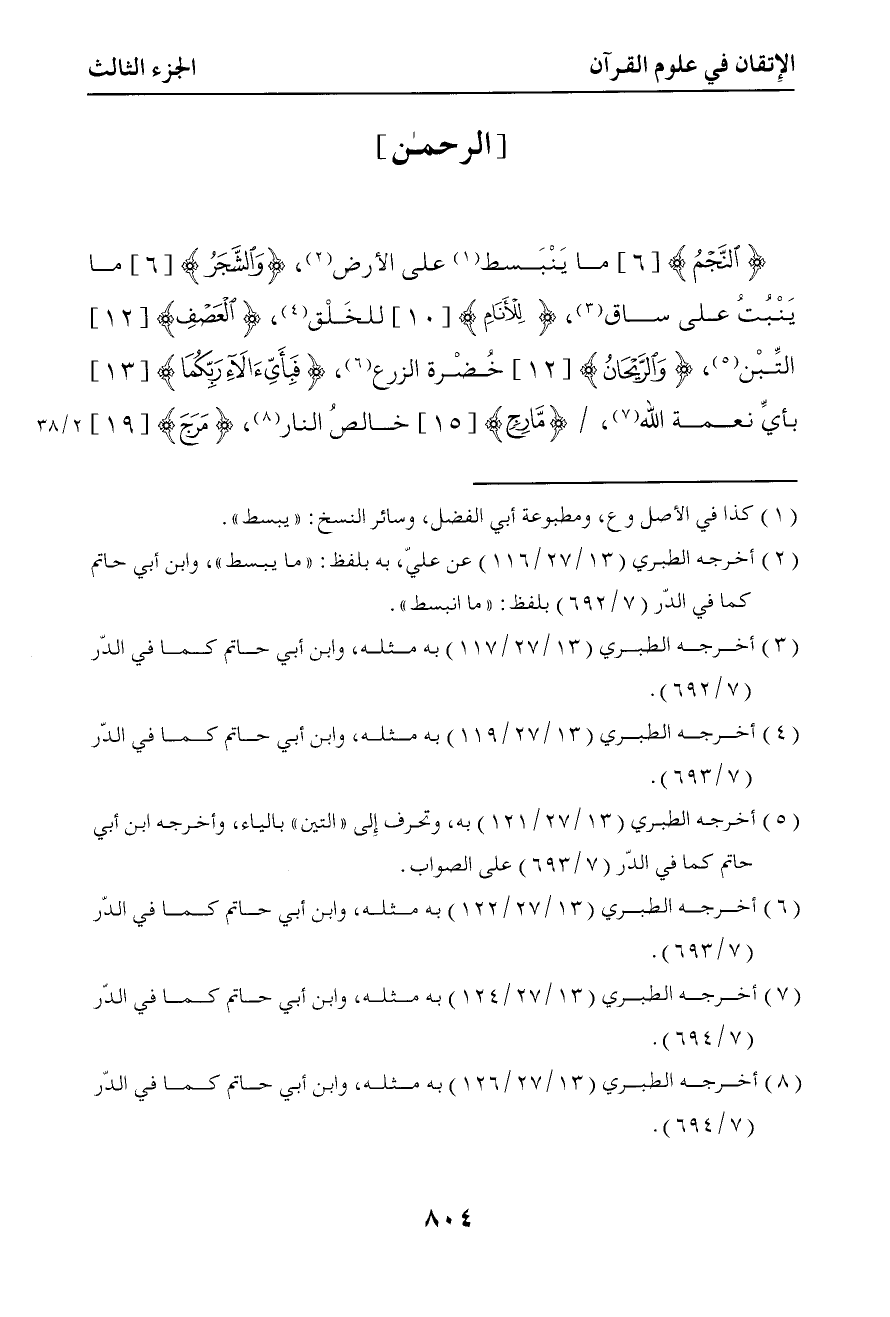 الإتقان في علوم القرآن الجزء الثالث
[الرحمـٰن]
﴿ٱلنَّجۡمُ﴾ [٦] مـا يَنْبَـسط(١) على الأرض(٢)، ﴿وَٱلشَّجَرُ﴾ [٦] مـا
يَنْبُتُ علـى سـاق(٣)، ﴿لِلۡأَنَامِ﴾ [١٠] للخَـلْق(٤)، ﴿ٱلۡعَصۡفِ﴾ [١٢]
التِّـبْن(٥)، ﴿وَٱلرَّيۡحَانُ﴾ [١٢] خُضْـرة الزرع(٦)، ﴿فَبِأَيِّ ءَالَآءِ رَبِّكُمَا﴾ [١٣]
بأيِّ نعـمـة الله(٧)، / ﴿مَّارِجٖ﴾ [١٥] خـالصُ النار(٨)، ﴿مَرَجَ﴾ [١٩] ٣٨/٢
(١) كذا في الأصل و ع، ومطبوعة أبي الفضل، وسائر النسخ: «يبسط».
(٢) أخرجه الطبري (١١٦/٢٧/١٣) عن عليّ، به بلفظ: «ما يبسط»، وابن أبي حاتم
كما في الدّر (٦٩٢/٧) بلفظ: «ما انبسط».
(٣) أخـرجـه الطبـري (١١٧/٢٧/١٣) به مـثلـه، وابـن أبي حـاتم كـمـا في الـدّر
(٦٩٢/٧).
(٤) أخـرجـه الطبـري (١١٩/٢٧/١٣) به مـثلـه، وابن أبي حـاتم كـمـا في الـدّر
(٦٩٣/٧).
(٥) أخرجه الطبري (١٢١/٢٧/١٣) به، وتحرف إلى «التين» بالياء، وأخرجه ابن أبي
حاتم كما في الدّر (٦٩٣/٧) على الصواب.
(٦) أخـرجـه الطبـري (١٢٢/٢٧/١٣) به مـثلـه، وابن أبي حـاتم كـمـا في الـدّر
(٦٩٣/٧).
(٧) أخـرجـه الطبـري (١٢٤/٢٧/١٣) به مـثلـه، وابن أبي حـاتم كـمـا في الـدّر
(٦٩٤/٧).
(٨) أخـرجـه الطبـري (١٢٦/٢٧/١٣) به مـثلـه، وابن أبي حـاتم كـمـا في الـدّر
(٦٩٤/٧).
٨٠٤